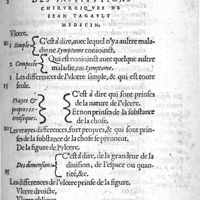 DES INSTITUTIONS
CHIRVRGIQVES DE
IEAN TAGAVLT
MEDECIN,
Vlcere.
1 Simple
C'est à dire, auec lequel n'y a autre mala-
die ou Symptome conioinct,
2 Composée
Qui est conioinct auec quelque autre
maladie, ou Symptome.
Les differences de l'vlcere simple, & qui est toute
seule.
Prayes &
propres ex-
trinseques.
C'est à dire qui sont prinses
de la nature de l'vlcere.
Et non prinses de la substance
de la chose.
Les vrayes differences, fort propres, & qui sont prin-
ses de la substance de la chose se prennent.
De la figure de l'vlcere.
Des dimensions
C'est à dire, de la grandeur de la
diuision, de l'espace ou quan-
tité, &c.
Les differences de l'vlcere prinse de la figure.
Vlcere droicte,
Vlcere oblique,